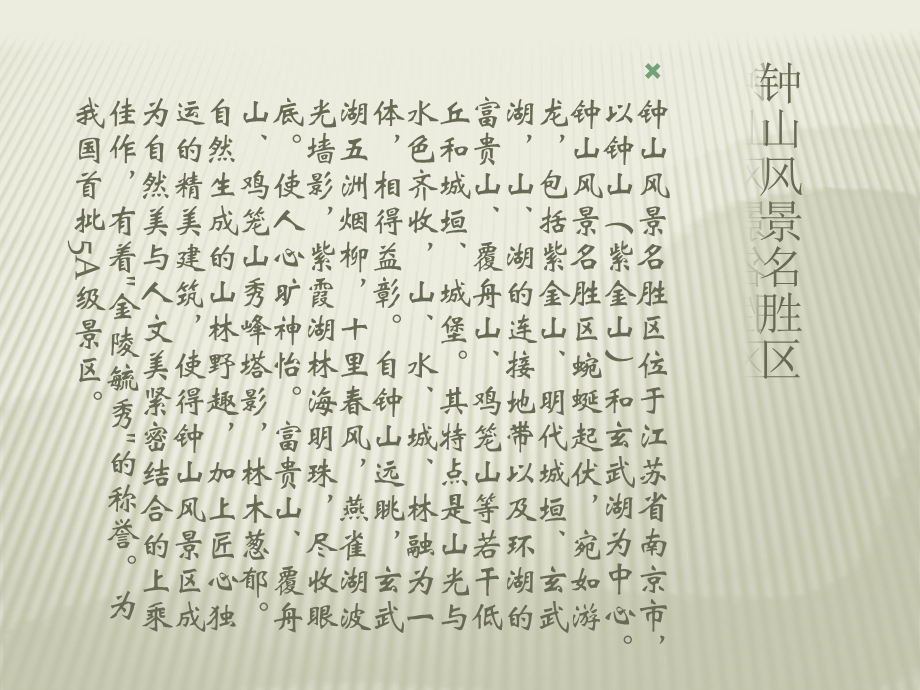 钟山风景名胜区
钟山风景名胜区位于江苏省南京市，
以钟山(紫金山)和玄武湖为中心。
钟山风景名胜区蜿蜒起伏，宛如游
龙，包括紫金山、明代城垣、玄武
湖，山、湖的连接地带以及环湖的
富贵山、覆舟山、鸡笼山等若干低
丘和城垣、城堡。其特点是山光与
水色齐收，山、水、城、林融为一
体，相得益彰。自钟山远眺，玄武
湖五洲烟柳，十里春风，燕雀湖波
光墙影，紫霞湖林海明珠，尽收眼
底。使人心旷神怡。富贵山、覆舟
山、鸡笼山秀峰塔影，林木葱郁。
自然生成的山林野趣，加上匠心独
运的精美建筑，使得钟山风景区成
为自然美与人文美紧密结合的上乘
佳作，有着"金陵毓秀"的称誉。为
我国首批5A级景区。